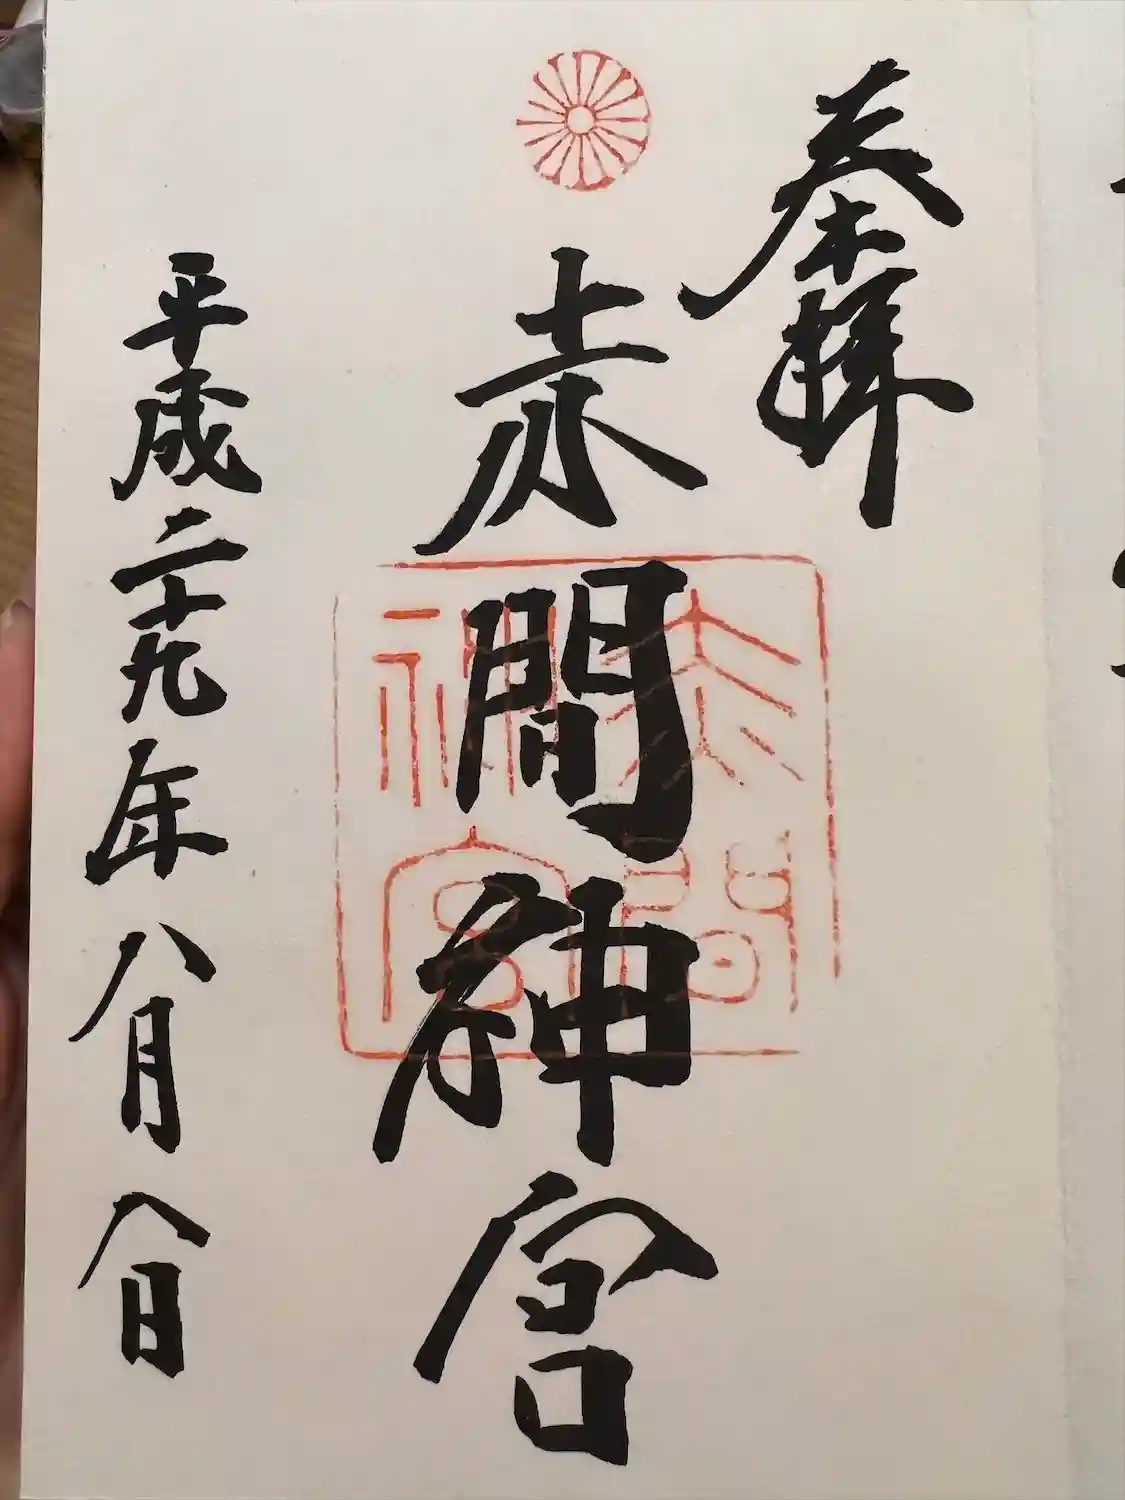 奉拝
赤間神宮
平成二十九年八月八日
赤間
神宮